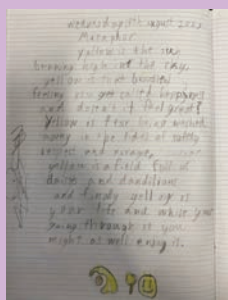 Metaphor
yellow is the sun,
high in the sky,
yellow is that beautiful
feeling you get called happyness
and doesn't it feel great?
Yellow is fear being washed
away in the tides of safety
respect and
yellow is a field full of
daisys and dandilions
and finaly yellow is
your life and while your
going through it you
might as well enjoy it.